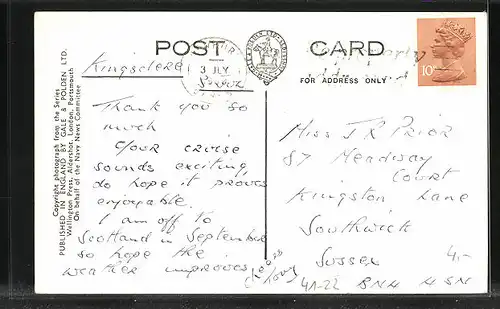 POST CARD
FOR ADDRESS ONLY
10
3 JLY
Kingsclere
Thank you so
much
Your cruise
sounds exciting,
do hope it proves
enjoyable.
I am off to
Scotland in September
so hope the
weather improves
Miss J R Prior
87 Meadway
Court
Kingston Lane
Southwick
Sussex
BN4 4SN
4,-
Copyright photograph from the Series
PUBLISHED IN ENGLAND BY GALE & POLDEN LTD.
Wellington Press, Aldershot, London, Portsmouth
On behalf of the Navy News Committee